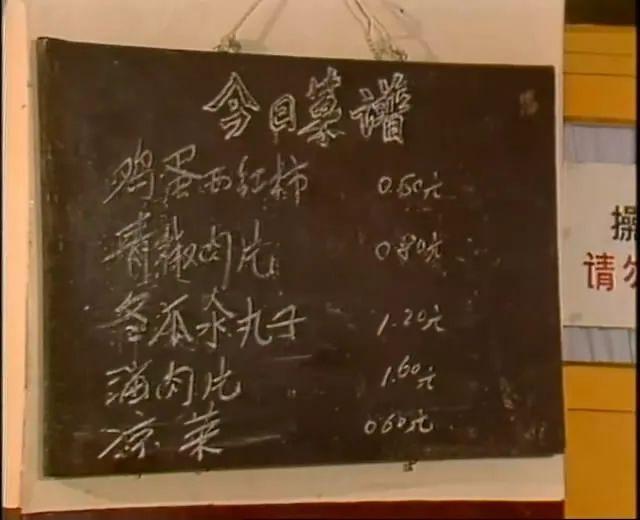 今日菜谱
鸡蛋西红柿 0.60元
青椒肉片 0.80元
冬瓜汆丸子 1.20元
溜肉片 1.60元
凉菜 0.60元
操
请勿